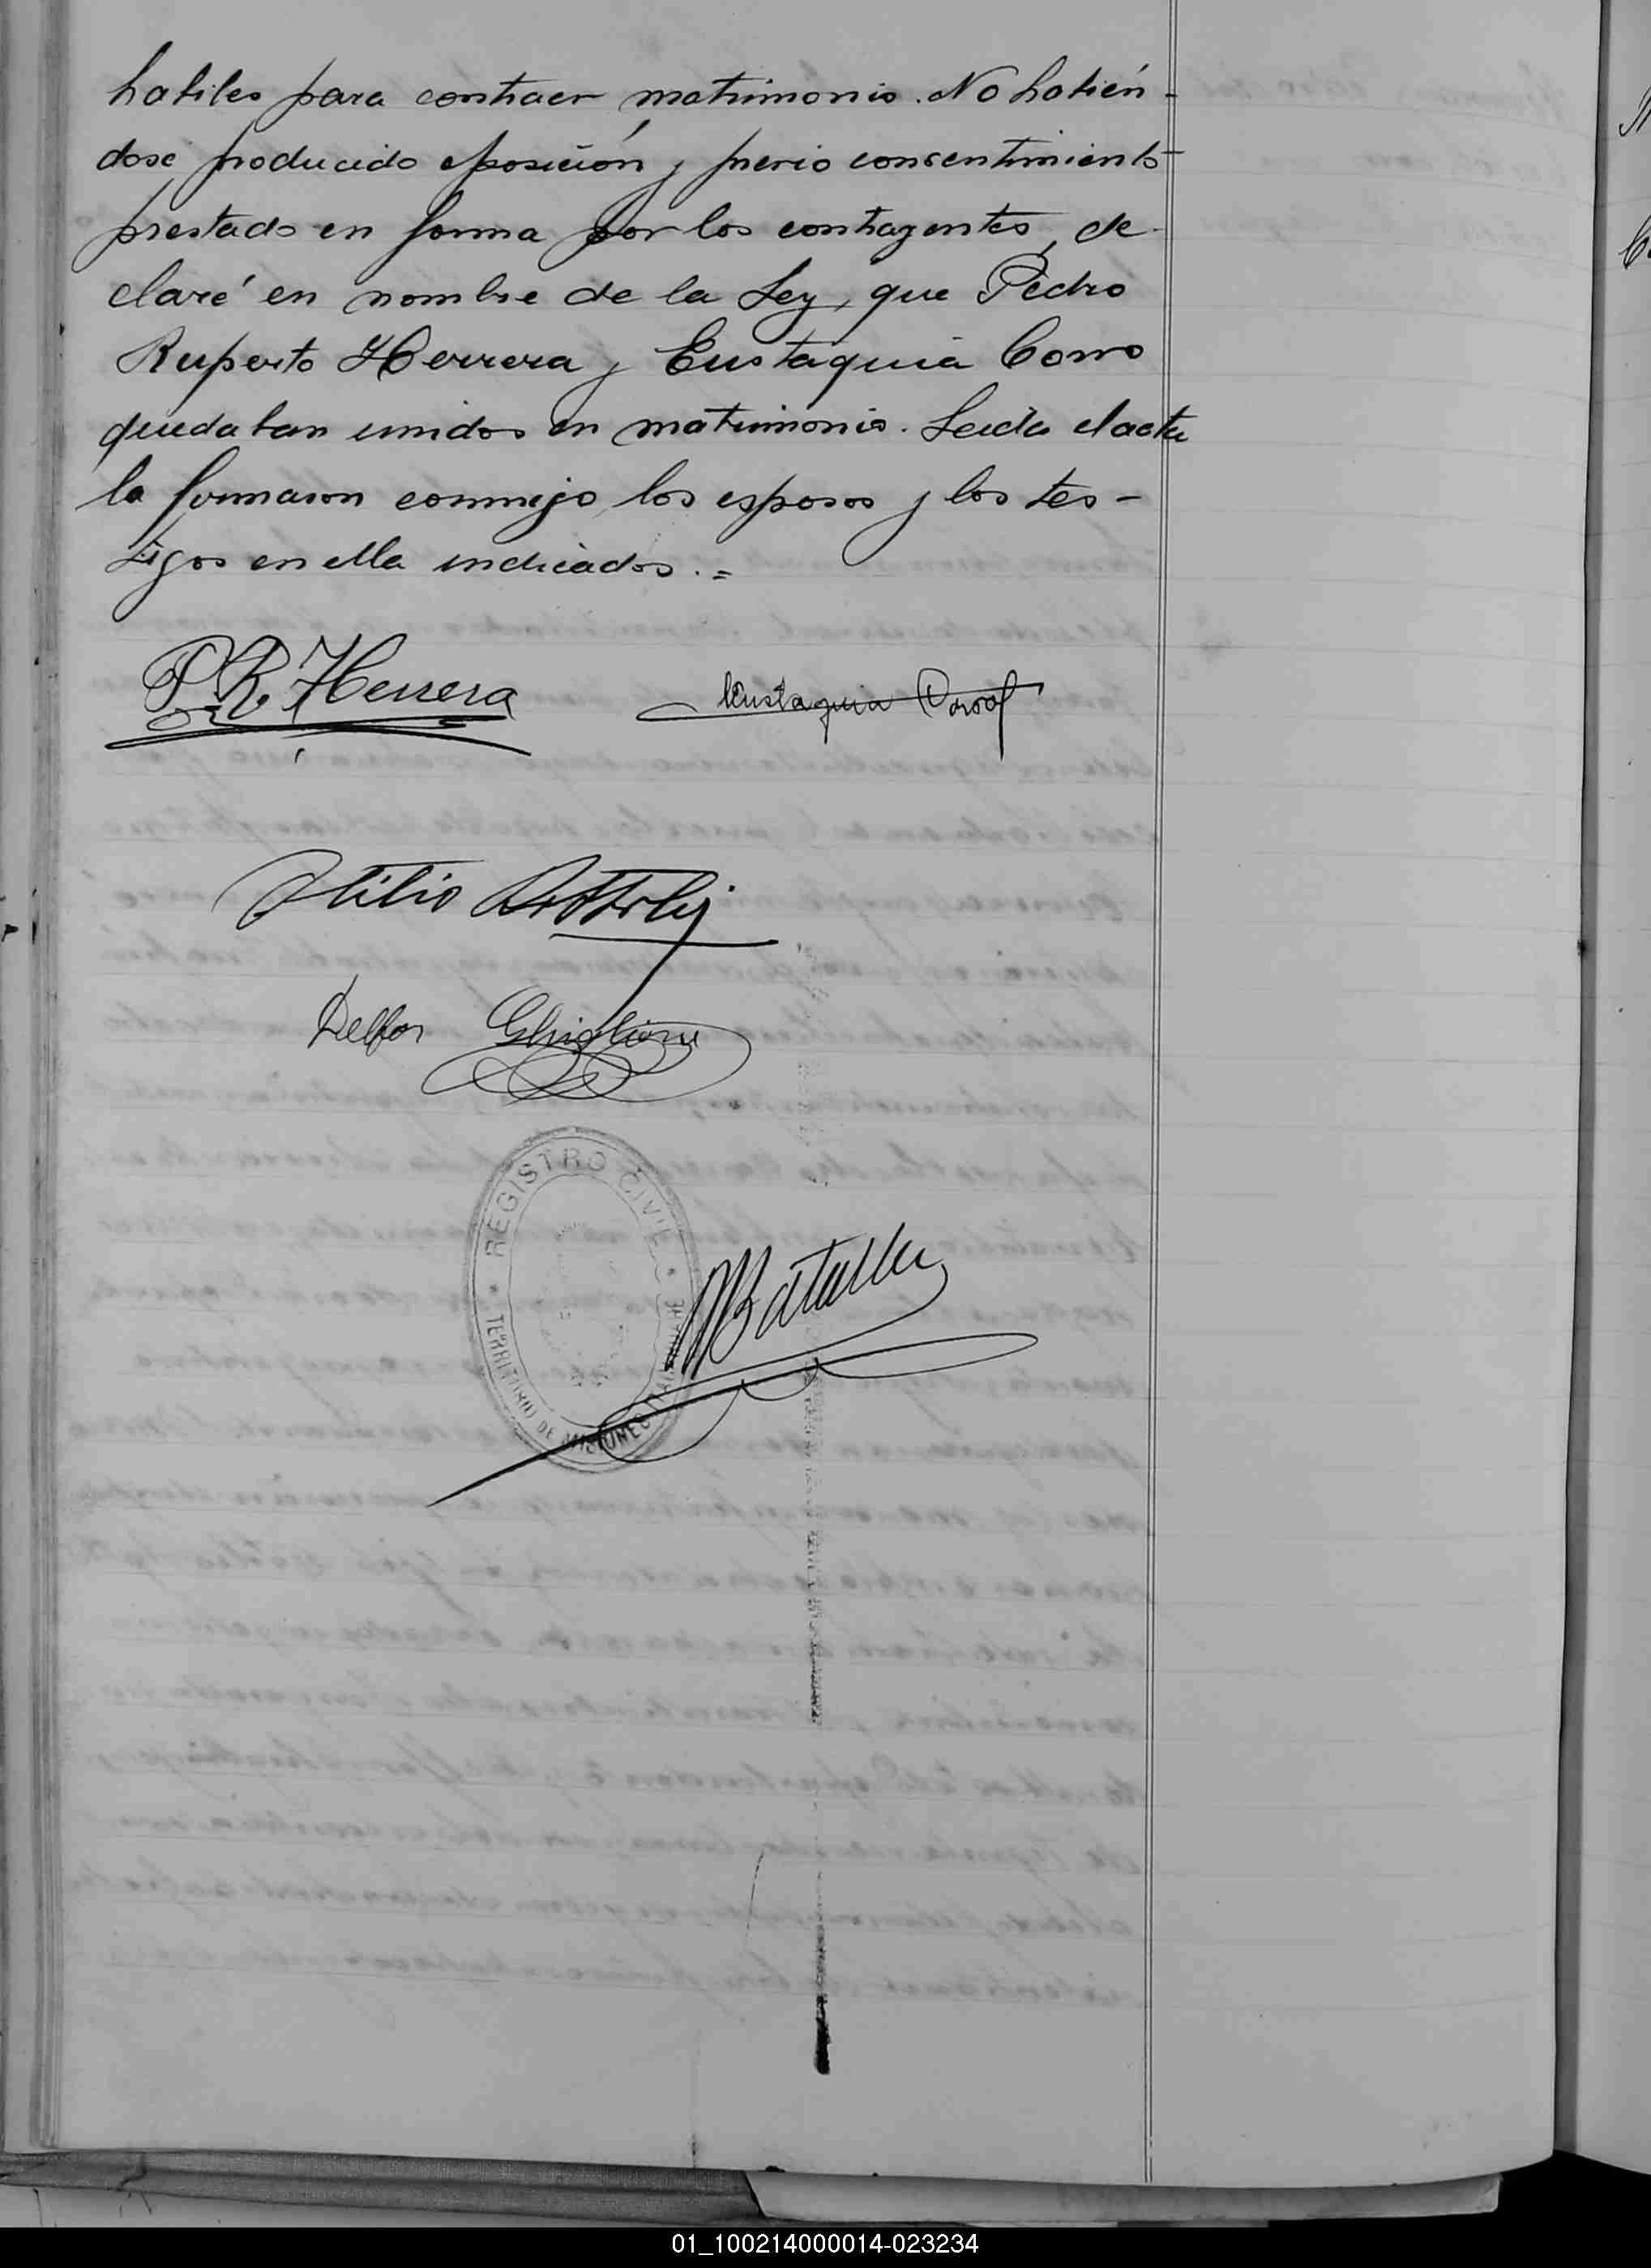 habiles para contraer matrimonio. No habién-
dose producido oposición y previo consentimiento
prestado en forma por los contrayentes, de-
claré en nombre de la Ley, que Pedro
Ruperto Herrera y Eustaquia Corro
quedaban unidos en matrimonio. Leida el acta
la firmaron conmigo los esposos y los tes-
tigos en ella indicados.=
P. R. Herrera Eustaquia
Atilio
Delfor Ghiglione
REGISTRO CIVIL
TERRITORIO DE MISIONES
01_100214000014-023234